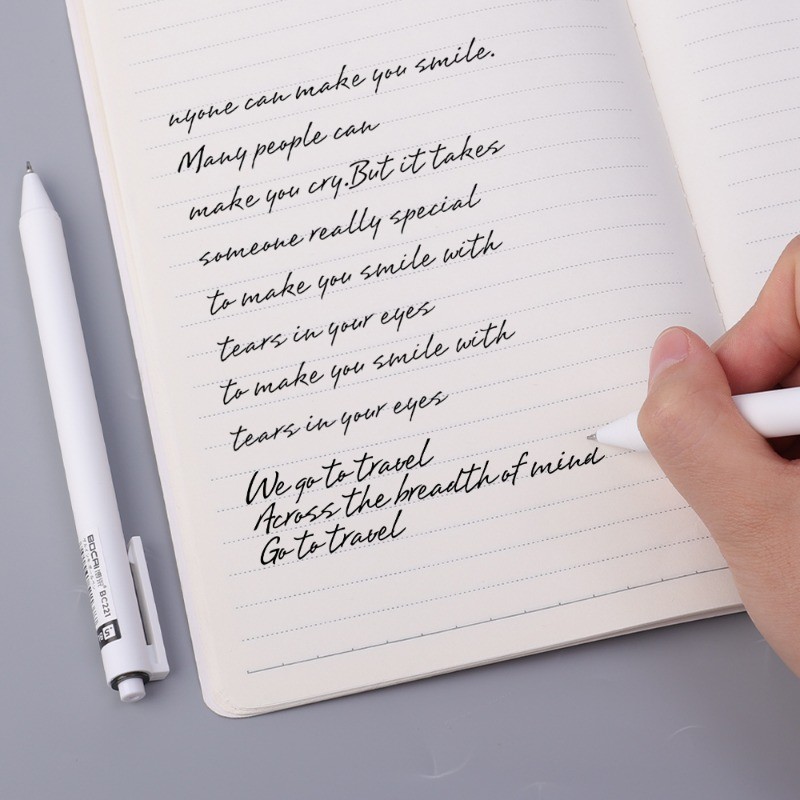 nyone can make you smile.
Many people can
make you cry.But it takes
someone really special
to make you smile with
tears in your eyes
to make you smile with
tears in your eyes
We go to travel
Across the breadth of mind
Go to travel
BOCAI BC221